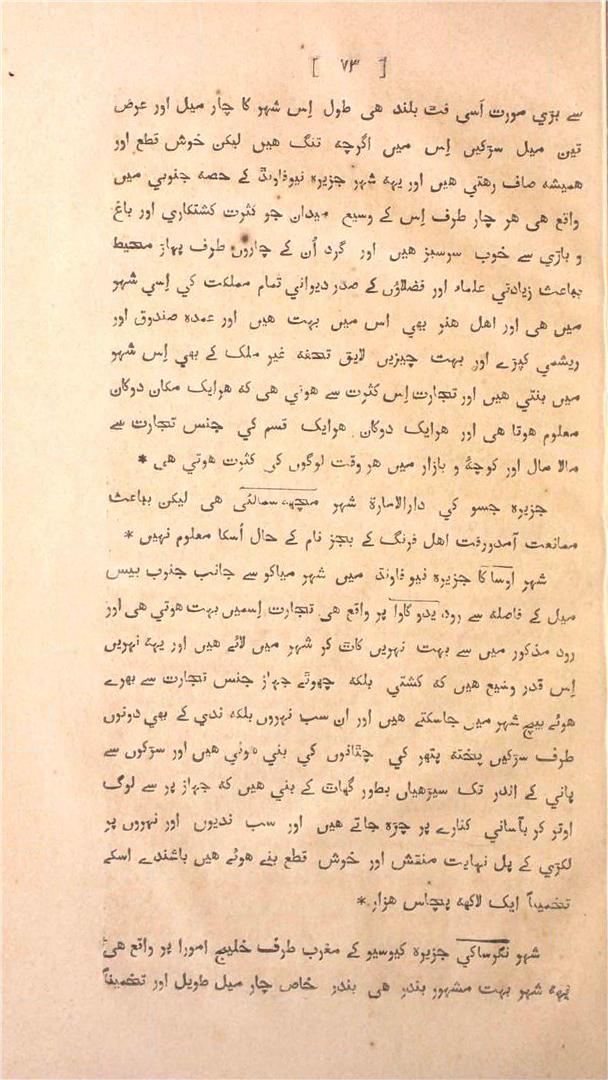 [ ٧٣ ]
سے بڑي مورت اَسی فٹ بلند هی طول اِس شہر کا چار میل اور عرض
تین میل سڑکیں اِس میں اگرچہ تنگ هیں لیکن خوش قطع اور
همیشہ صاف رهتي هیں اور یہہ شہر جزیرہ نیوفاونڈ کے حصہ جنوبي میں
واقع هی هر چار طرف اِس کے وسیع میدان جو کثرت کشتکاري اور باغ
و باڑي سے خوب سرسبز هیں اور گرد اُن کے چاروں طرف پہاڑ محیط
بباعث زیادتي علماء اور فضلاؤں کے صدر دیواني تمام مملکت کي اِسي شہر
میں هی اور اهل هنر بھي اس میں بہت هیں اور عمدہ صندوق اور
ریشمي کپڑے اور بہت چیزیں لایق تحفہ غیر ملک کے بھي اِس شہر
میں بنتي هیں اور تجارت اِس کثرت سے هوتي هی کہ هرایک مکان دوکان
معلوم هوتا هی اور هرایک دوکان هرایک قسم کي جنس تجارت سے
مالا مال اور کوچۂ و بازار میں هر وقت لوگوں کي کثرت هوتي هی *
جزیرہ جسو کي دارالامارة شہر هی لیکن بباعث
ممانعت آمدورفت اهل فرنگ کے بجز نام کے حال اُسکا معلوم نہیں *
شہر اوساکا جزیرہ نیوفاونڈ میں شہر میاکو سے جانب جنوب بیس
میل کے فاصلہ سے رود یدوکاوا پر واقع هی تجارت اِسمیں بہت هوتي هی اور
رود مذکور میں سے بہت نہریں کاٹ کر شہر میں لائے هیں اور یہہ نہریں
اِس قدر وسیع هیں کہ کشتي بلکہ چھوٹے جہاز جنس تجارت سے بھرے
هوئے بیچ شہر میں جاسکتے هیں اور ان سب نہروں بلکہ ندي کے بھي دونوں
طرف سڑکیں پختہ پتھر کي چٹانوں کي بني هوئي هیں اور سڑکوں سے
پاني کے اندر تک سیڑھیاں بطور گھاٹ کے بني هیں کہ جہاز پر سے لوگ
اوتر کر بآساني کنارے پر چڑہ جاتے هیں اور سب ندیوں اور نہروں پر
لکڑي کے پل نہایت منقش اور خوش قطع بنے هوئے هیں باشندے اسکے
تخمیناً ایک لاکھہ پچاس هزار *
شہر نگوساکي جزیرہ کیوسیو کے مغرب طرف خلیج امورا پر واقع هی
یہہ شہر بہت مشہور بندر هی بندر خاص چار میل طویل اور تخمیناً